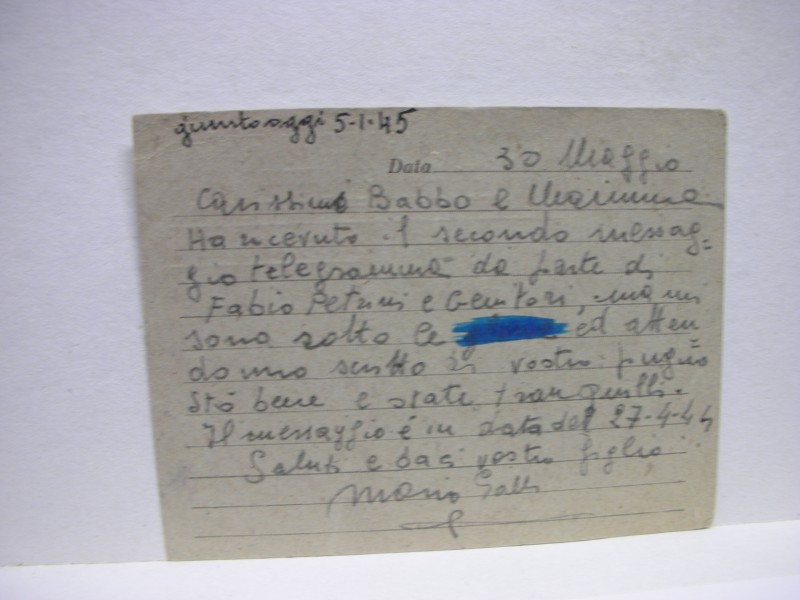 giunto oggi 5-1-45
Data 30 Maggio
Carissimi Babbo e Mamma
Ho ricevuto il secondo messag=
gio telegramma da parte di
Fabio Petrini e Genitori, ma mi
sono sotto le ed atten
do uno scritto di vostro pugno
Stò bene e state tranquilli.
Il messaggio è in data del 27-4-44
Saluti e baci vostro figlio
Mario Galli